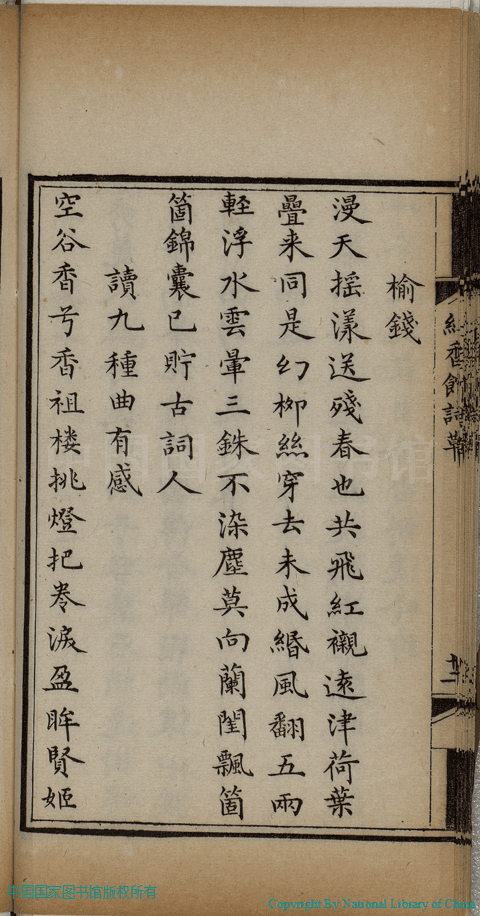 榆錢
漫天摇漾送殘春也共飛紅襯遠津荷葉
疊来同是幻柳絲穿去未成緡風翻五兩
輕浮水雲暈三銖不染塵莫向蘭閨飄箇
箇錦囊已貯古詞人
讀九種曲有感
空谷香兮香祖楼挑燈把卷淚盈眸賢姬
紅香館詩草
十二
中国国家图书馆版权所有
Copyright By National Library of China